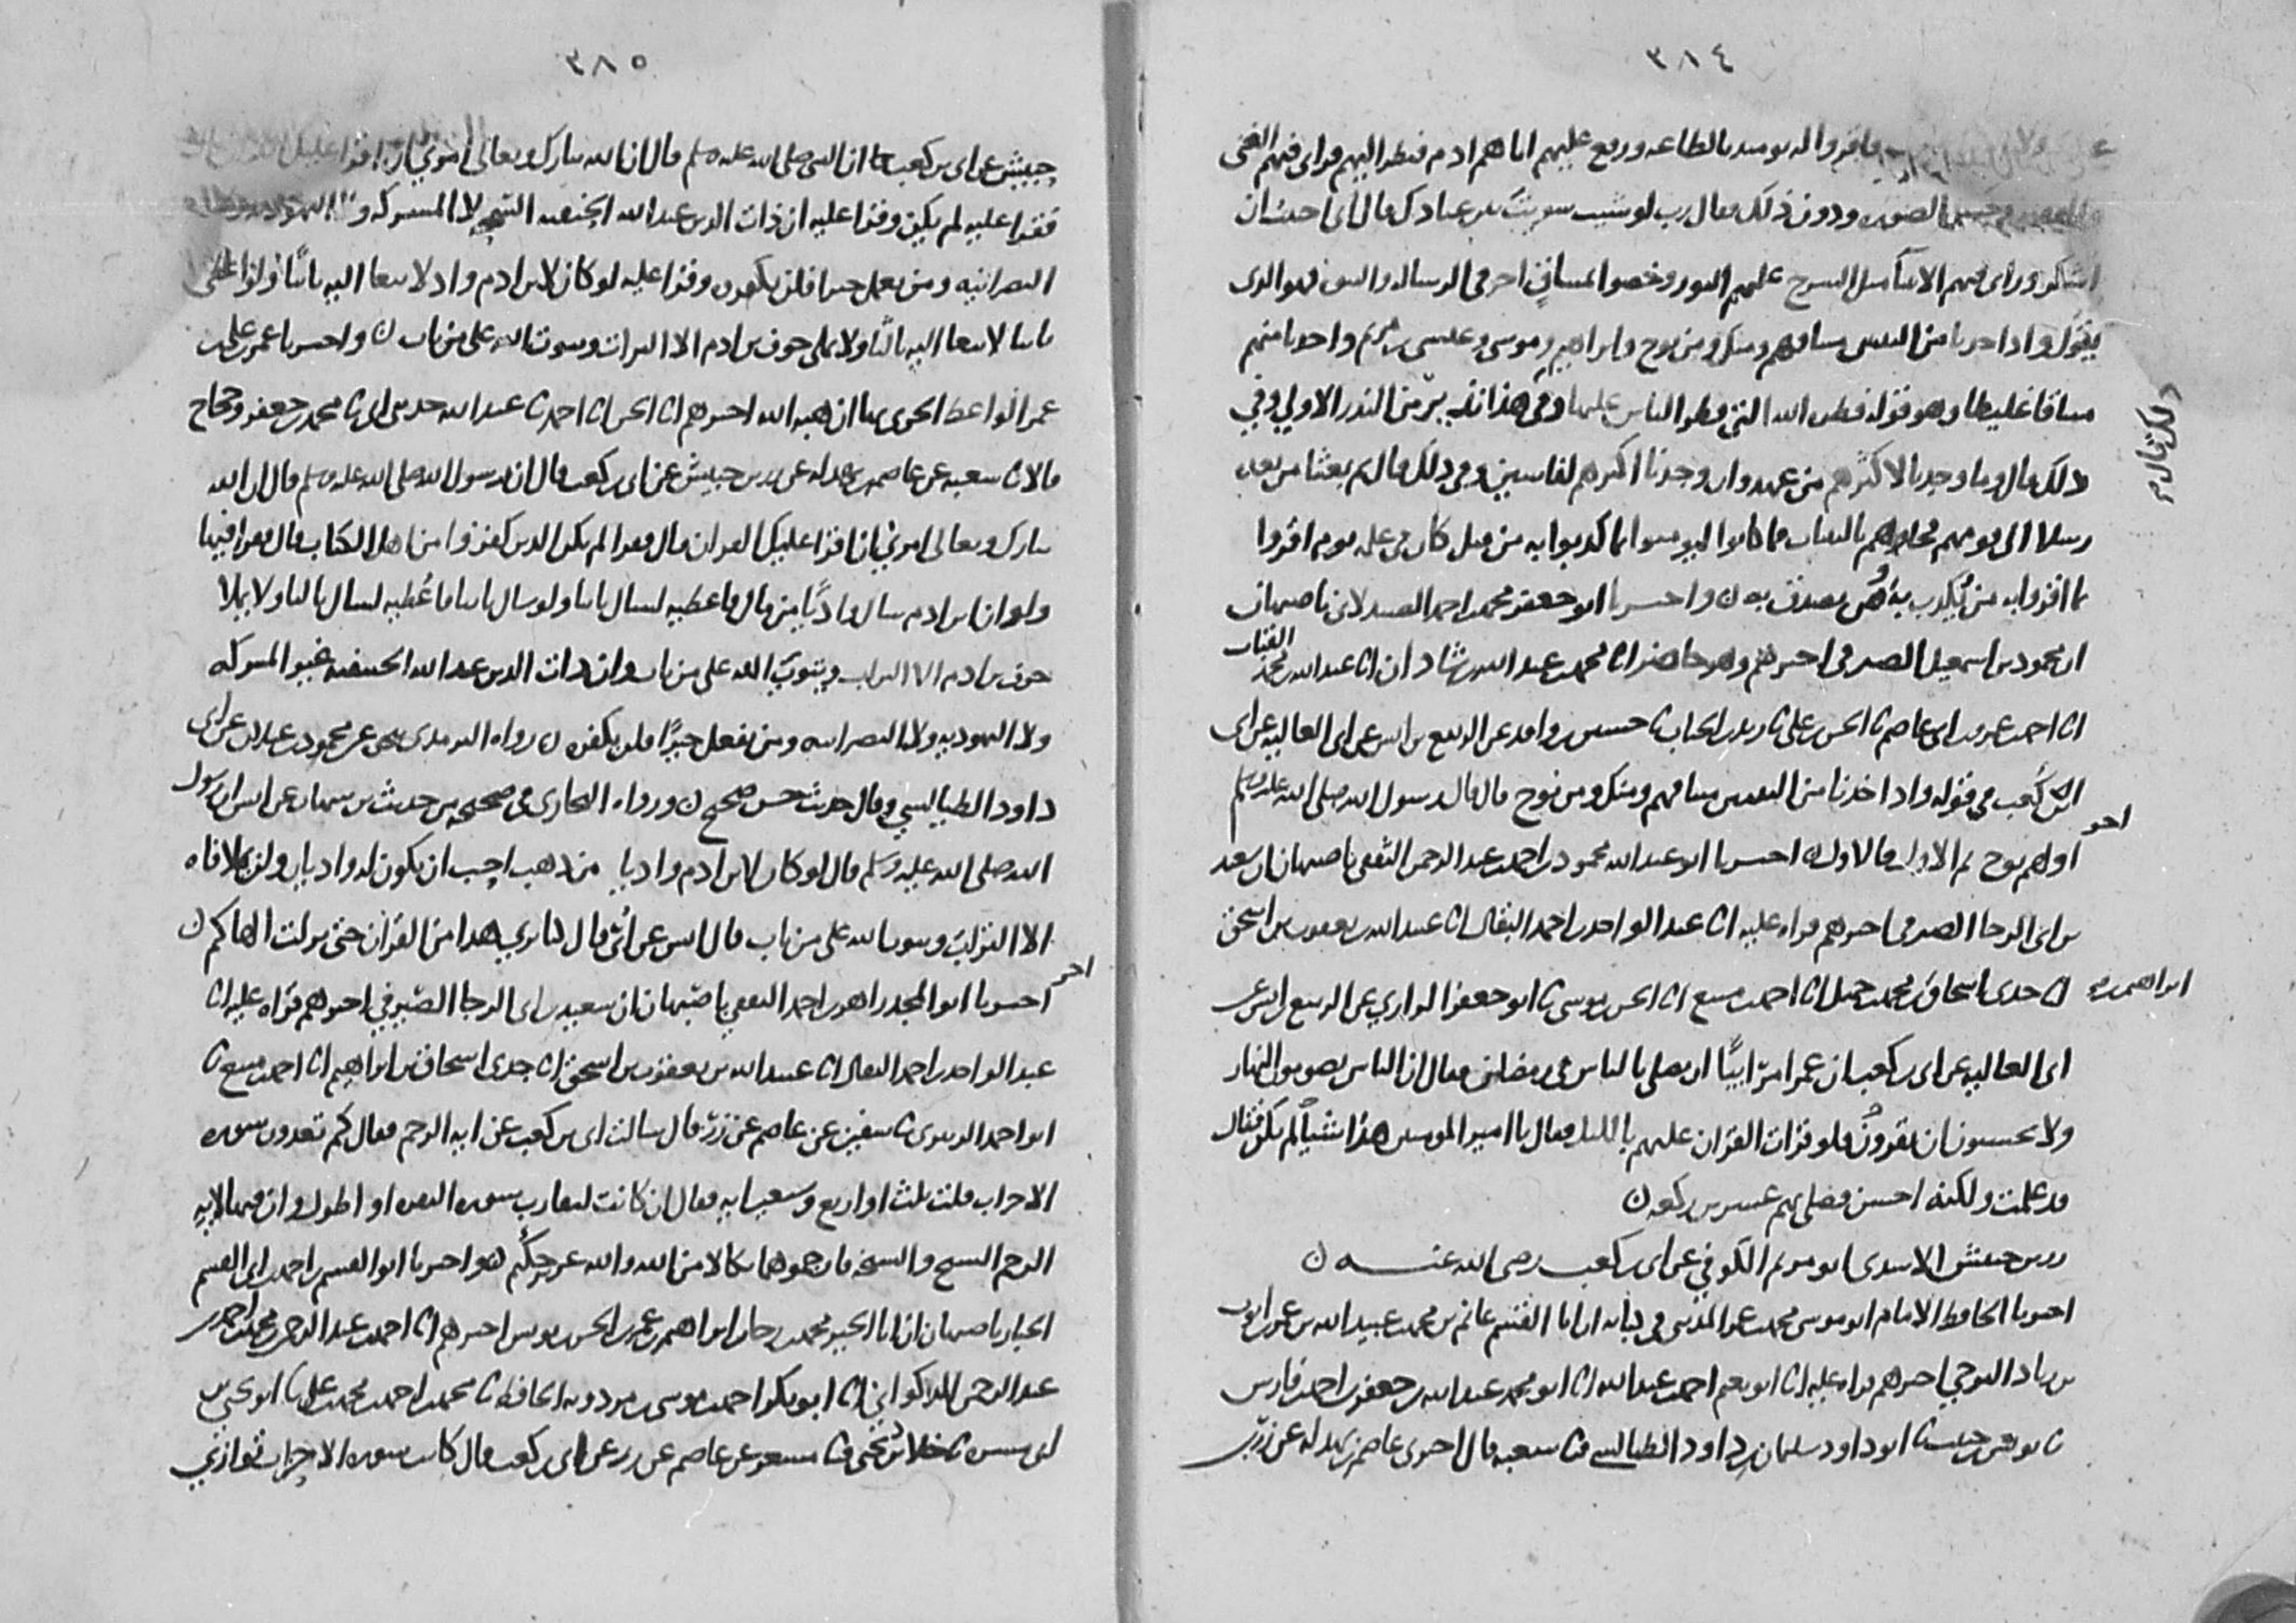 ٣٨٤
فاقروا له يومئذ بالطاعة ورفع عليهم اباهم ادم فنظر اليهم فراى فيهم الغنى
الصورة ودون ذلك فقال رب لو شيت سويت بين عبادك قال انى احببت ان
اشكر وراى فيهم الانبيا مثل السرج عليهم النور وخصوا بميثاق اخر فى الرسالة والنبوة فهو الذى
يقول واذ اخذنا من النبيين ميثاقهم ومنك ومن نوح وابراهيم وموسى وعيسى بن مريم واخذنا منهم
ميثاقا غليظا وهو قوله فطرت الله التي فطر الناس عليها وفى هذا نذير من النذر الاولي وفي
ذلك قال وما وجدنا لاكثرهم من عهد وان وجدنا اكثرهم لفاسقين وفى ذلك قال ثم بعثنا من بعده
ذلك قال
رسلا الى قومهم فجاوهم بالبينات فما كانوا ليومنوا بما كذبوا به من قبل كان فى علمه يوم اقروا
بما اقروا به من يكذب به ومن يصدق به ن واخبرنا ابو جعفر محمد بن احمد الصيدلانى باصبهان
ان محمود بن اسمعيل الصيرفى اخبرهم وهو حاضر انا محمد بن عبد الله بن شاذان انا عبد الله بن محمد
القباب
انا احمد بن عمرو بن ابى عاصم نا الحسن بن على نا زيد بن الحباب نا حسين بن واقد عن الربيع بن انس عن ابى العالية عن ابى
بن كعب فى قوله واذ اخذنا من النبيين ميثاقهم ومنك ومن نوح قال قال رسول الله صلى الله عليه وسلم
اولهم نوح ثم الاول فالاول ن اخبرنا ابو عبد الله محمود بن احمد بن عبد الرحمن الثقفى باصبهان ان سعيد
اخر
بن ابى الرجا الصيرفى اخبرهم قراه عليه انا عبد الواحد بن احمد البقال انا عبيد الله بن يعقوب بن اسحق
انا جدى اسحاق بن محمد بن جميل انا احمد بن منيع انا الحسن بن موسى نا ابو جعفر الرازي عن الربيع بن انس عن
ابراهيم بن
ابى العالية عن ابى بن كعب ان عمر امر ابيًّا ان يصلى بالناس فى رمضان فقال ان الناس يصومون النهار
ولا يحسنون ان يقروا فلو قرات القران عليهم بالليل فقال يا امير المومنين هذا شيا لم يكن فقال
قد علمت ولكنه احسن فصلى بهم عشرين ركعة ن
زر بن حبيش الاسدى ابو مريم الكوفي عن ابى بن كعب رضى الله عنه ن
اخبرنا الحافظ الامام ابو موسى محمد بن عمر المدينى فى كتابه ان ابا القسم غانم بن محمد بن عبيد الله بن عمر بن ايوب
بن زياد البرجي اخبرهم قراه عليه انا ابو نعيم احمد بن عبد الله انا ابو محمد عبد الله بن جعفر بن احمد بن فارس
نا يونس بن حبيب نا ابو داود سليمان بن داود الطيالسى نا شعبة قال اخبرنى عاصم بن بهدلة عن زر بن
٣٨٥
حبيش عن ابى بن كعب ان النبى صلى الله عليه وسلم قال ان الله تبارك وتعالى امرني ان اقرا عليك
فقرا عليه لم يكن وقرا عليه ان ذات الدين عند الله الحنيفية السمحة لا المشركة ولا اليهودية ولا
النصرانية ومن يعمل خيرا فلن يكفره وقرا عليه لو كان لابن ادم واد لابتغا اليه ثانيًا ولو اعطى
ثانيا لابتغا اليه ثالثا ولا يملى جوف بن ادم الا التراب ويتوب الله على من تاب ن واخبرنا عمر بن على بن
عمر الواعظ الحربى بها ان هبة الله اخبرهم انا الحسن انا احمد نا عبد الله حدثنى ابى نا محمد بن جعفر وحجاج
قالا نا شعبة عن عاصم بن بهدلة عن زر بن حبيش عن ابى بن كعب قال ان رسول الله صلى الله عليه وسلم قال ان الله
تبارك وتعالى امرني ان اقرا عليك القران قال فقرا لم يكن الذين كفروا من اهل الكتاب قال فقرا فيها
ولو ان ابن ادم سال واديًا من مال فاعطيه لسال ثانيا ولو سال ثانيا فاعطيه لسال ثالثا ولا يملا
جوف بن ادم الا التراب ويتوب الله على من تاب وان ذات الدين عند الله الحنيفية غير المشركة
ولا اليهودية ولا النصرانية ومن يفعل خيرًا فلن يكفره ن رواه الترمذى عن محمود بن غيلان عن ابى
داود الطيالسي وقال حديث حسن صحيح ن ورواه البخارى فى صحيحه من حديث بن شهاب عن انس ان رسول
الله صلى الله عليه وسلم قال لو كان لابن ادم واديا من ذهب احب ان يكون له واديان ولن يملا فاه
الا التراب ويتوب الله على من تاب قال انس عن ابى قال كنا نرى هذا من القران حتى نزلت الهاكم ن
اخبرنا ابو المجد زاهر بن احمد الثقفى باصبهان ان سعيد بن ابى الرجا الصيرفي اخبرهم قراه عليه انا
اخر
عبد الواحد بن احمد البقال انا عبيد الله بن يعقوب بن اسحق انا جدى اسحاق بن ابراهيم انا احمد بن منيع نا
ابو احمد الزبيرى نا سفين عن عاصم عن زر قال سالت ابى بن كعب عن اية الرجم فقال كم تعدون سورة
الاحزاب قلت ثلث او اربع وسبعين اية فقال ان كانت لتقارب سورة البقرة او اطول وان فيها لاية
الرجم الشيخ والشيخة فارجموهما نكالا من الله والله عزيز حكيم ن واخبرنا ابو القسم بن احمد بن ابى القسم
الخباز باصبهان ان ابا الخير محمد بن رجا بن ابراهيم بن عمر بن الحسن بن يونس اخبرهم انا احمد بن عبد الرحمن بن محمد بن احمد بن
عبد الرحمن الذكواني انا ابو بكر احمد بن موسى بن مردويه الحافظ نا محمد بن احمد بن محمد بن على نا ابو
نا خلاد بن يحيى نا مسعر عن عاصم عن زر عن ابى بن كعب قال كانت سورة الاحزاب توازي